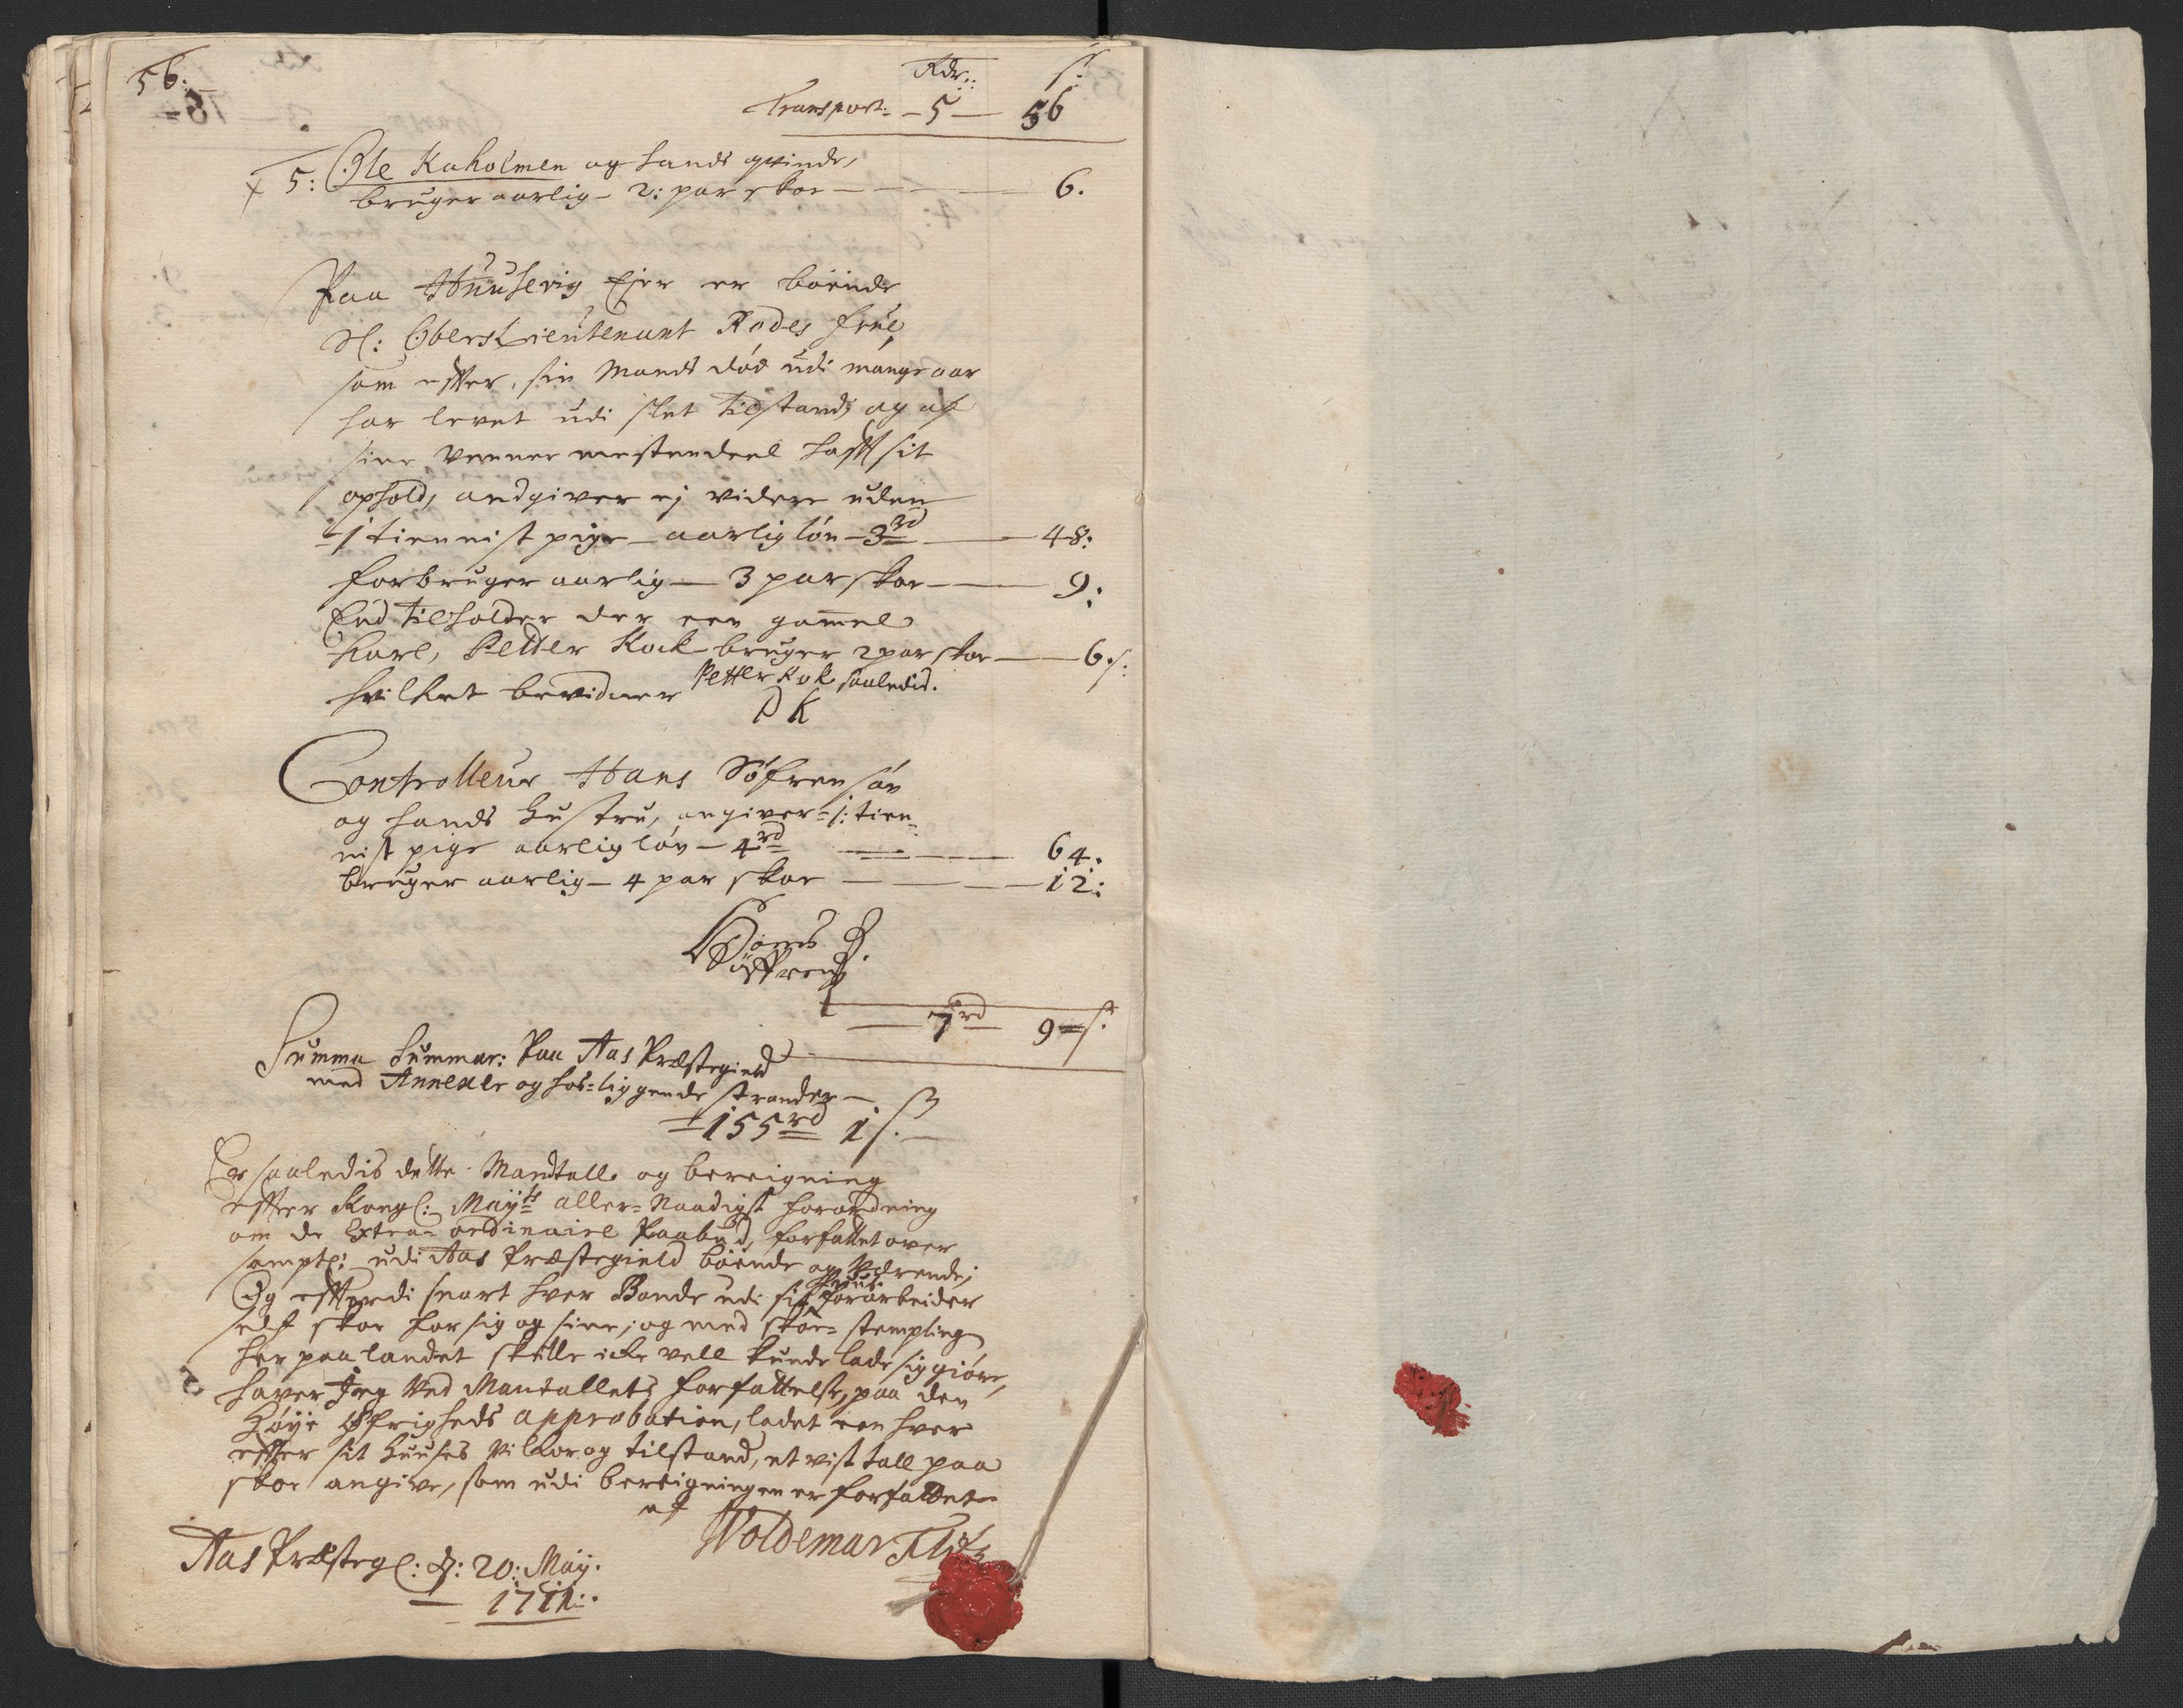 56:
Rdr: s:
Transport: — 5 — 56
5: Ole Kaholmen og hands qvinde,
bruger aarlig – 2: par skoe — 6.
Paa Huusevig Ejer er böende
Sl: Oberst Lieutenant Rodes frue,
som efter sin Mands död udi mange aar
har levet udi slet tilstand, og af
sine venner mestendeel hafft sit
ophold, andgiver ej videre uden
1 tiennist pige – aarlig lön – 3 rd — 48:
forbruger aarlig — 3 par skoe — 9:
End tilholder der een gamel
Karl, Petter Kock bruger 2 par skoe — 6 s:
hvilket bevidner Petter Kok saaledis.
P K
Controlleur Hans Söfrensön
og hands Hustru, angiver 1: tien-
nist pige aarlig lön – 4 rd — 64.
bruger aarlig – 4 par skoe — 12:
Hans
Söffrens
7 rd 9 s.
Summa Summar: Paa Aas Præstegield
med Annexer og hos-liggende strander —
155 rd 1 s. —
Er saaledis dette Mandtall og bereigning
efter Kongl: Mayts aller-Naadigst forordning
om de Extra-ordinaire Paabud, forfattet over
samptl: udi Aas Præstegield böende og værende;
Og efterdi snart hver Bonde udi sit huus forarbeider
self skoe for sig og sine; og med skoe-stempling
her paa landet skulle icke vell kunde lade sig giöre,
haver Jeg Ved Mantallets forfattelse, paa den
Höye Öfrigheds approbation, ladet een hver
efter sit Huuses vilkor og tilstand, et vist tall paa
skoe angive, som udi bereigningen er forfattet
af
Woldemar
Aas Præstegl: d: 20: Maij.
1711:.